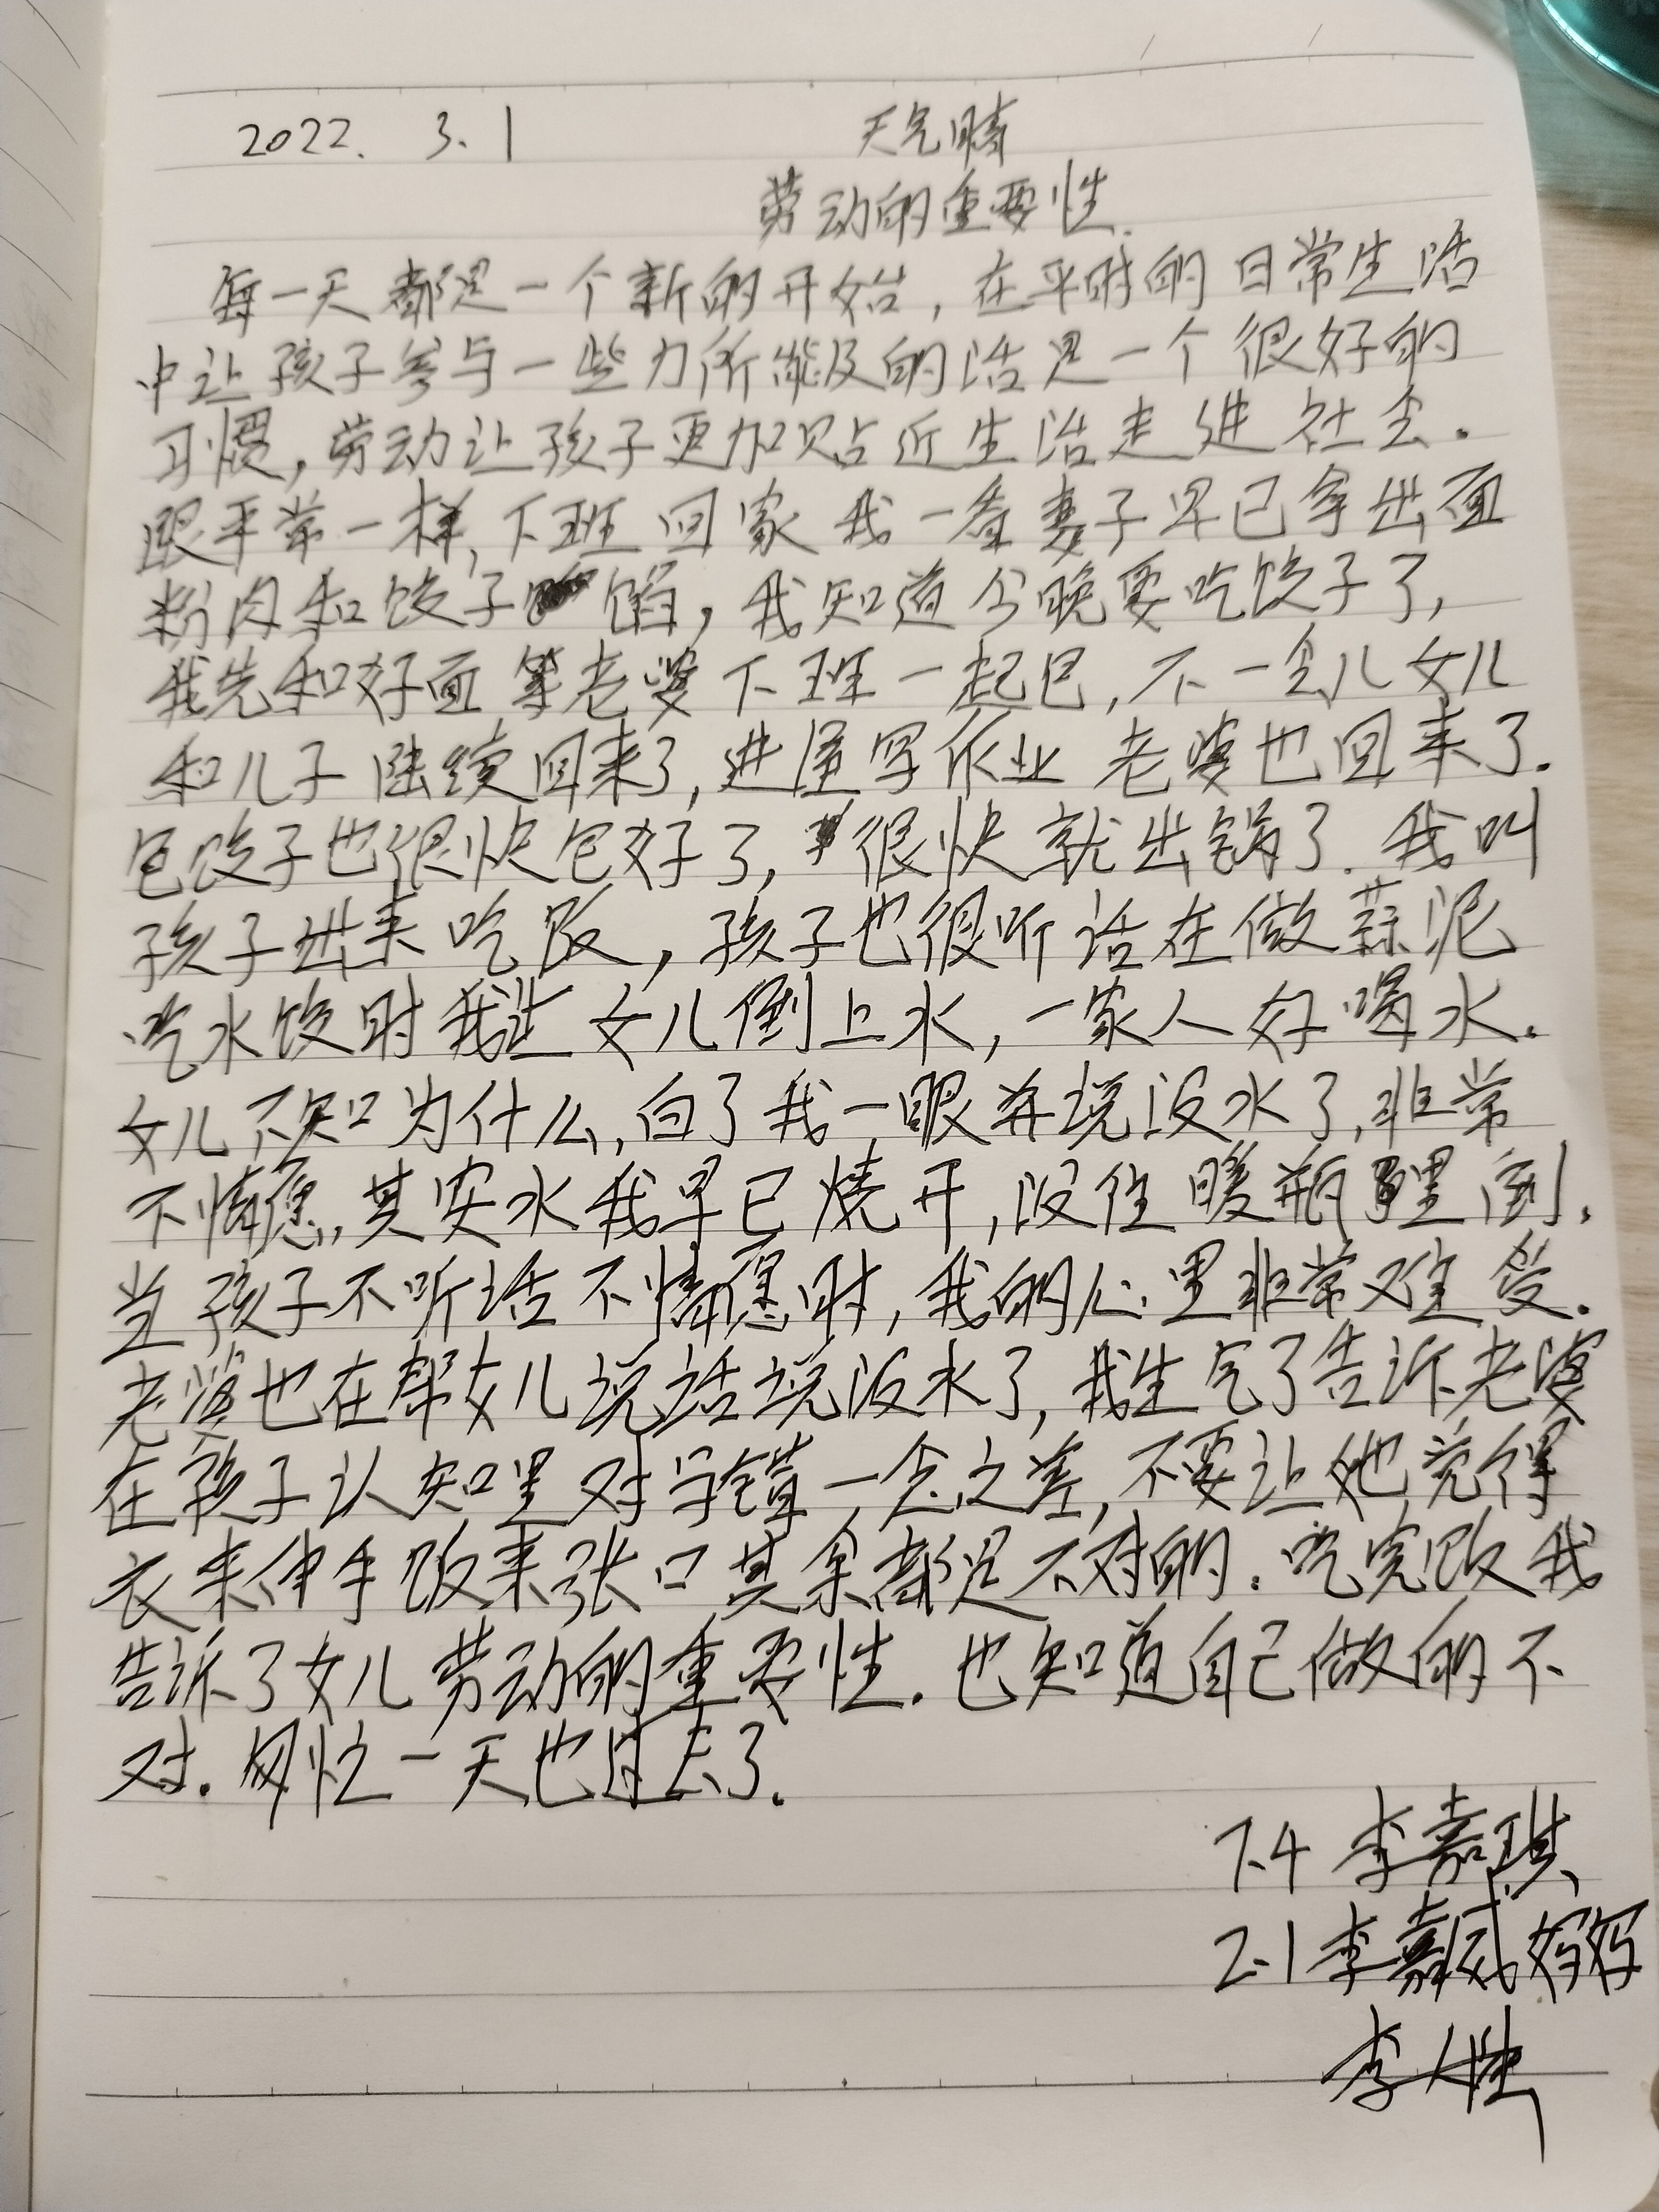 2022. 3.1 天气晴
劳动的重要性.
每一天都是一个新的开始,在平时的日常生活
中让孩子参与一些力所能及的活是一个很好的
习惯,劳动让孩子更加贴近生活走进社会.
跟平常一样,下班回家我一看妻子早已拿出面
粉肉和饺子馅,我知道今晚要吃饺子了,
我先和好面等老婆下班一起包,不一会儿女儿
和儿子陆续回来了,进屋写作业老婆也回来了.
包饺子也很快包好了,很快就出锅了.我叫
孩子出来吃饭,孩子也很听话在做蒜泥
吃水饺时我让女儿倒上水,一家人好喝水.
女儿不知为什么,白了我一眼并说没水了,非常
不情愿,其实水我早已烧开,没往暖瓶里倒.
当孩子不听话不情愿时,我的心里非常难受.
老婆也在帮女儿说话说没水了,我生气了告诉老婆
在孩子认知里对与错一念之差,不要让她觉得
衣来伸手饭来张口其余都是不对的.吃完饭我
告诉了女儿劳动的重要性.也知道自己做的不
对.匆忙一天也过去了.
7.4 李嘉琪
2.1李嘉威妈妈
李